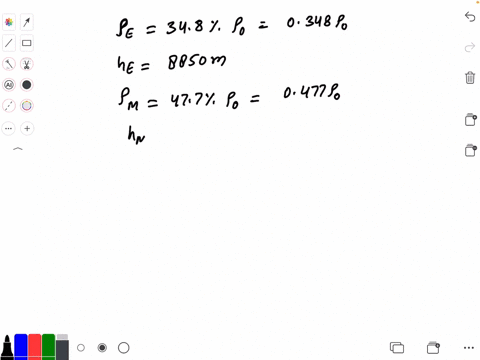 ρ_E = 34.8 % ρ_0 = 0.348 ρ_0
h_E = 8850 m
ρ_M = 47.7 % ρ_0 = 0.477 ρ_0
h_M